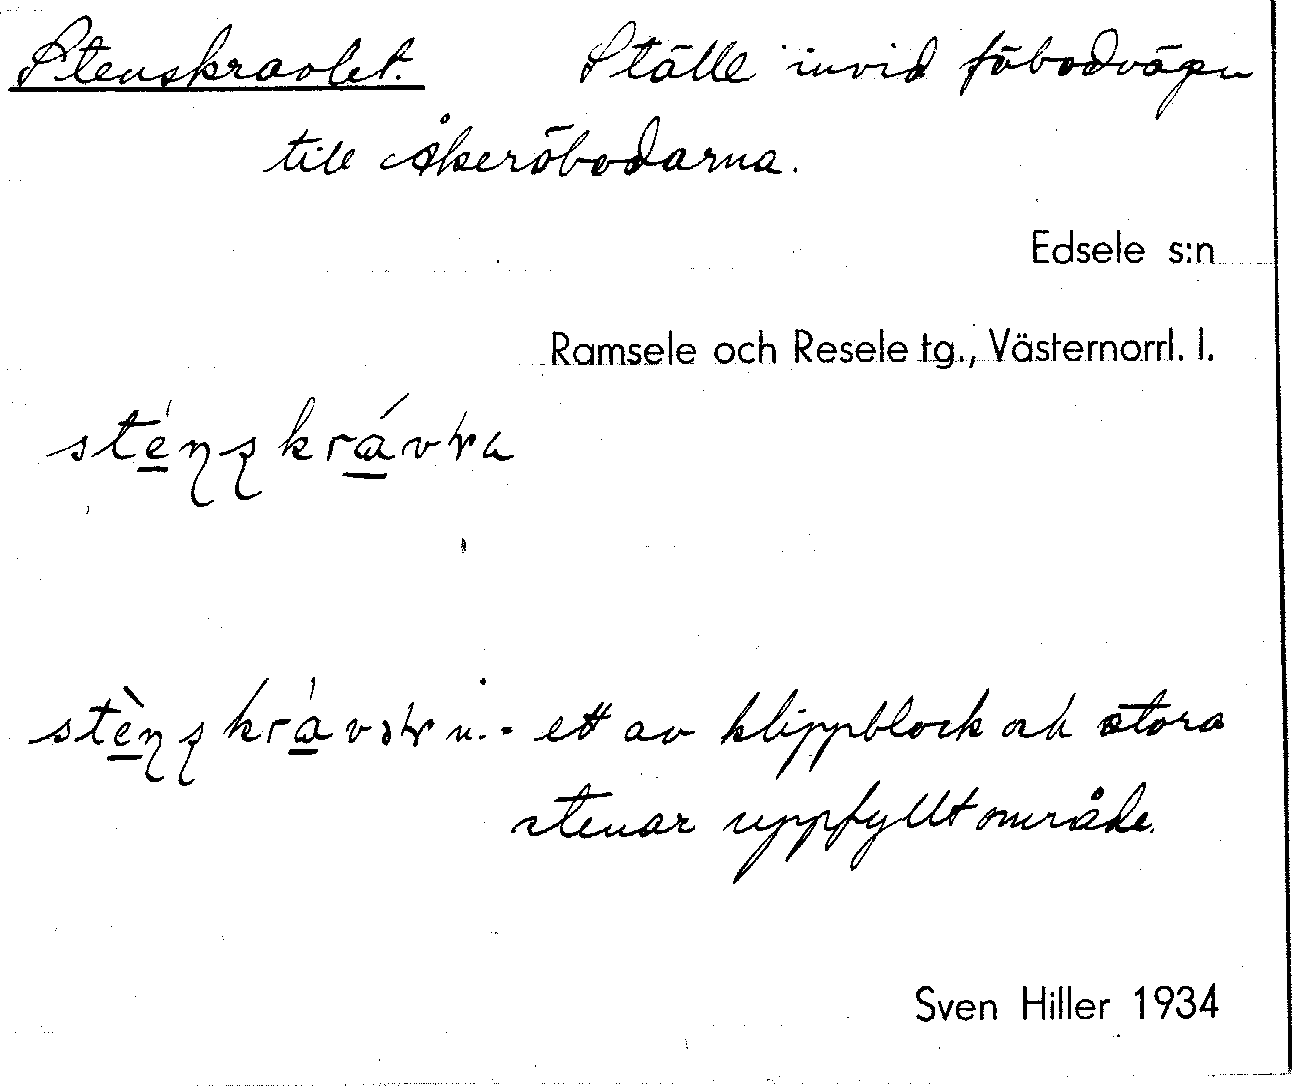 Stenskravlet. Ställe invid fäbodvägen
till Åkeröbodarna.
Edsele s:n
Ramsele och Resele tg., Västernorrl. l.
n. - ett av klippblock och stora
stenar uppfyllt område.
Sven Hiller 1934